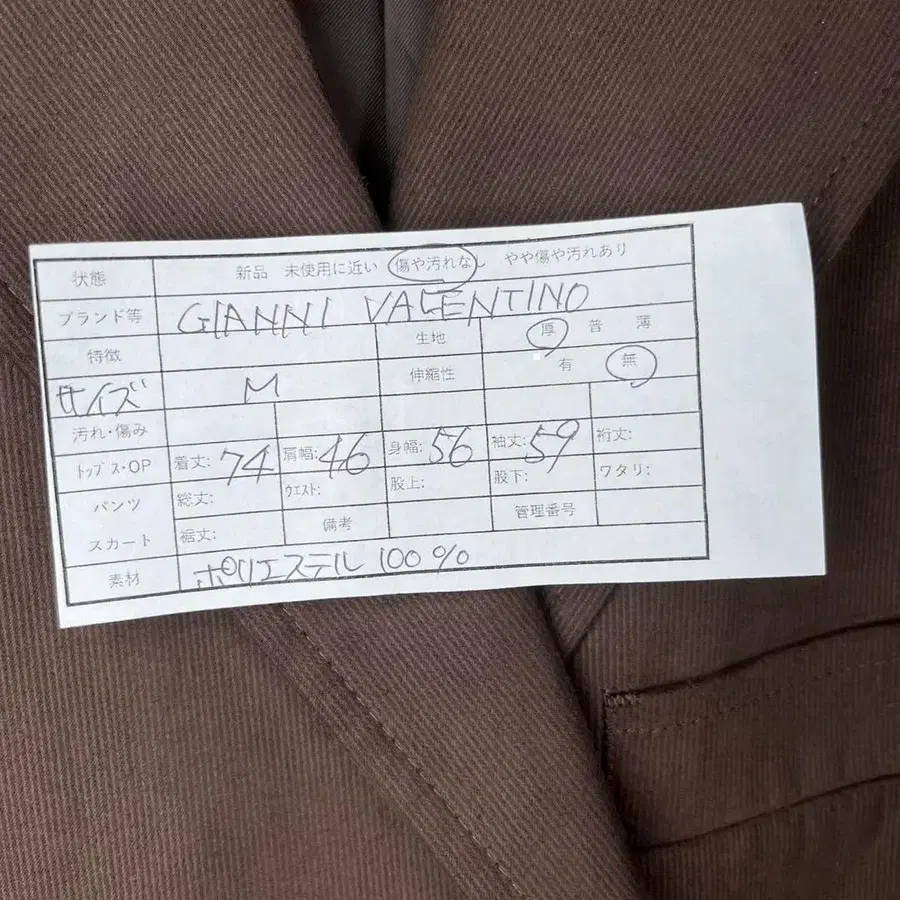 状態 新品 未使用に近い 傷や汚れなし やや傷や汚れあり
ブランド等 GIANNI VALENTINO
特徴 生地 厚 普 薄
サイズ M 伸縮性 有 無
汚れ・傷み
トップス・OP 着丈: 74 肩幅: 46 身幅: 56 袖丈: 59 裄丈:
パンツ 総丈: ウエスト: 股上: 股下: ワタリ:
スカート 裾丈: 備考 管理番号
素材 ポリエステル 100%